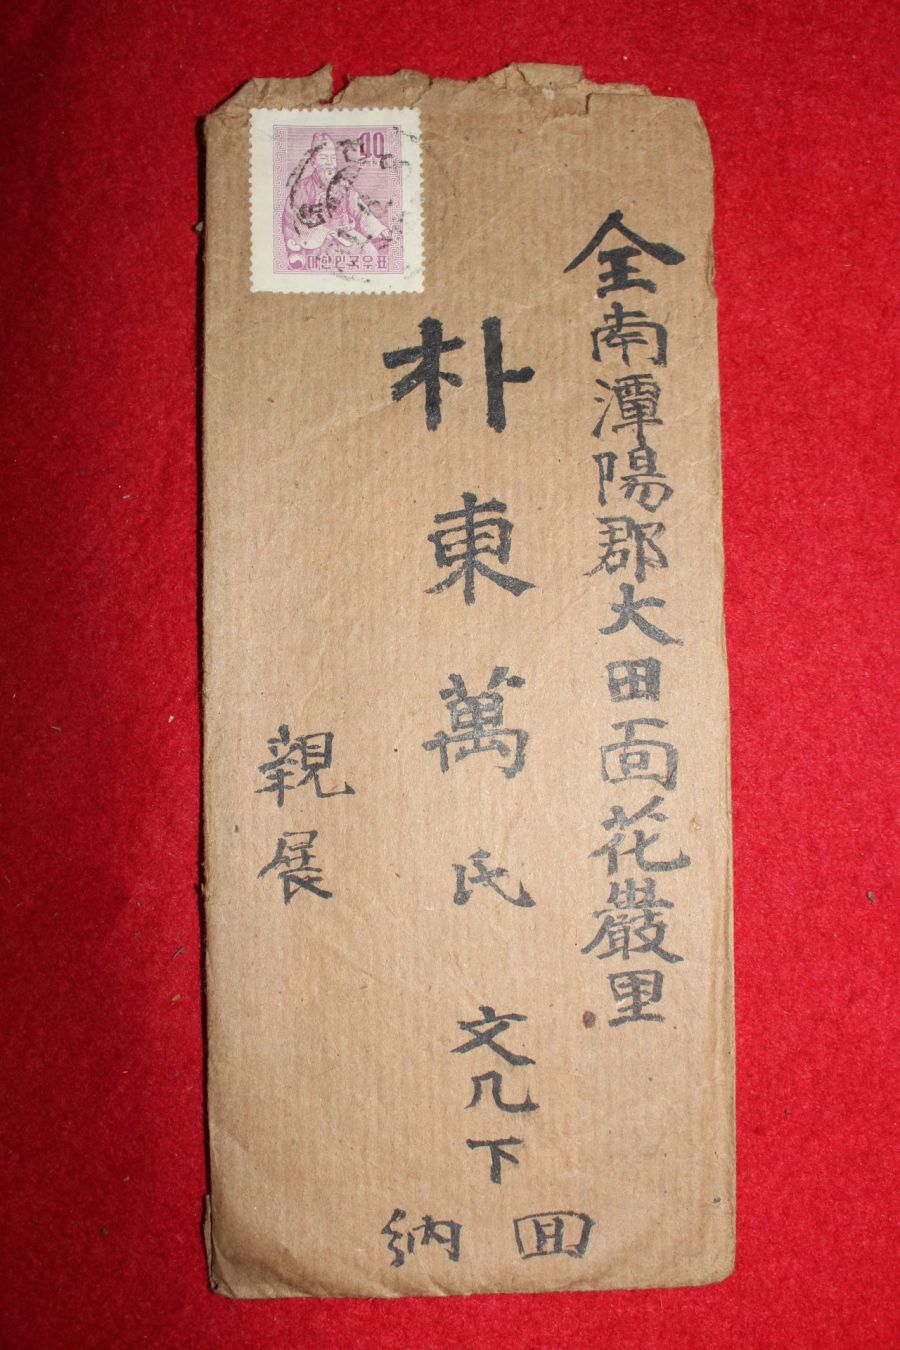 全南潭陽郡大田面花巖里
朴東萬氏 文几下
親展
回納
10
대한민국우표